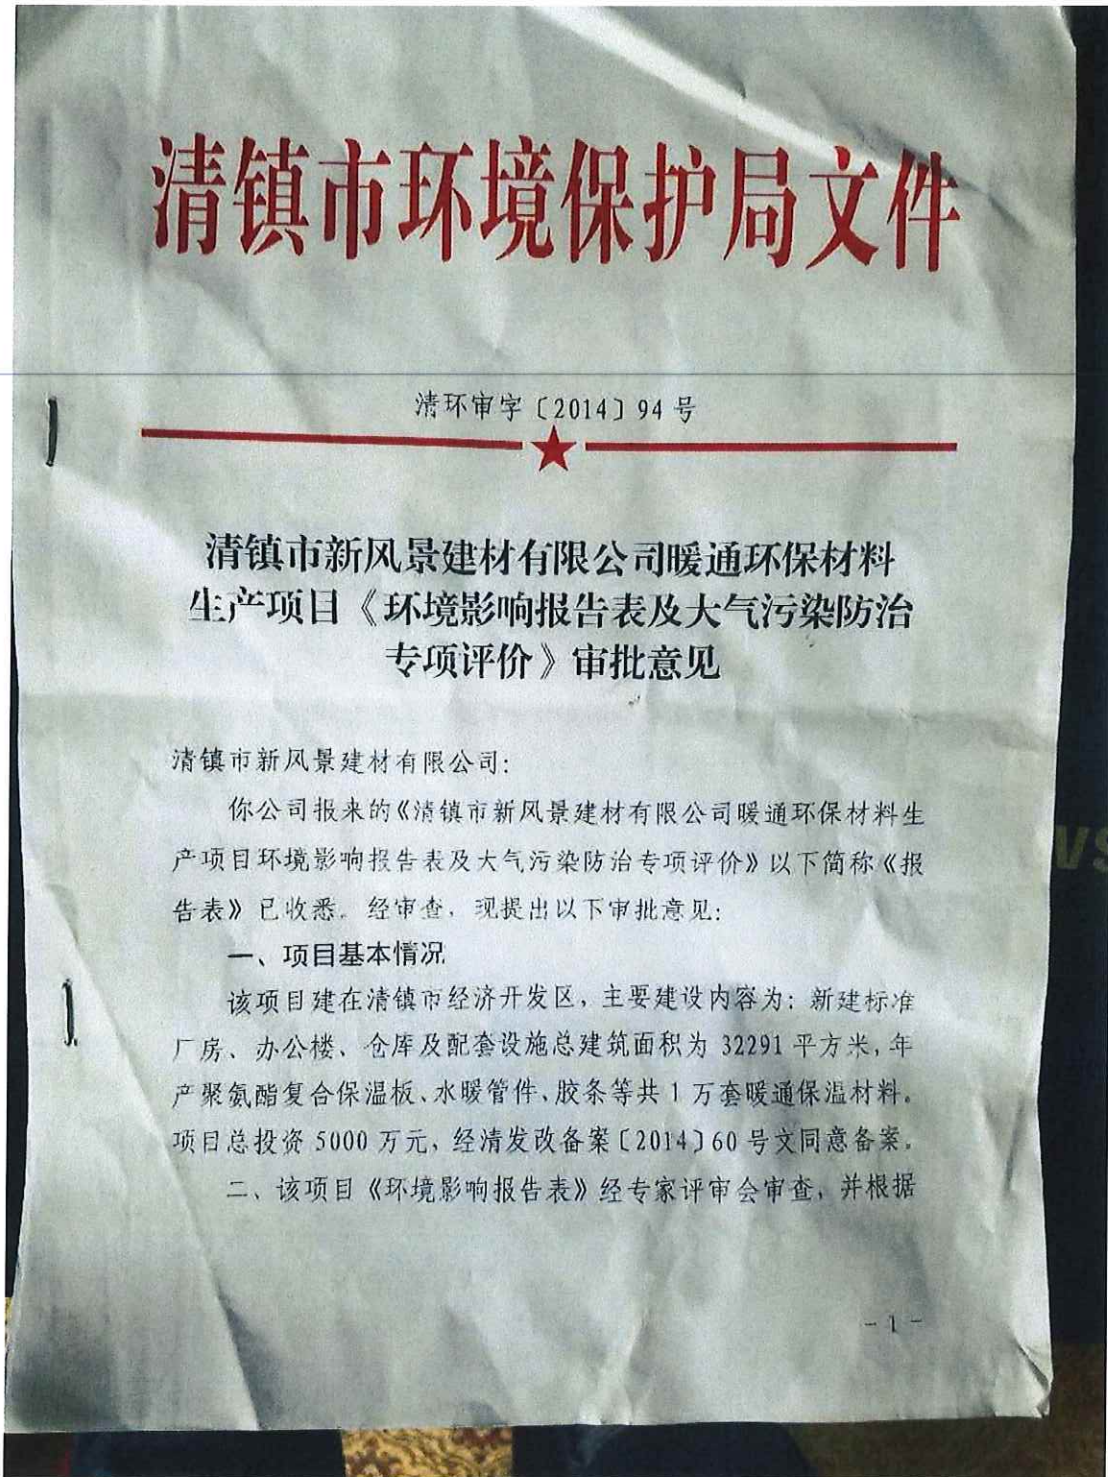 清镇市环境保护局文件
清环审字〔2014〕94号
清镇市新风景建材有限公司暖通环保材料
生产项目《环境影响报告表及大气污染防治
专项评价》审批意见
清镇市新风景建材有限公司:
你公司报来的《清镇市新风景建材有限公司暖通环保材料生
产项目环境影响报告表及大气污染防治专项评价》以下简称《报
告表》已收悉。经审查,现提出以下审批意见:
一、项目基本情况
该项目建在清镇市经济开发区,主要建设内容为:新建标准
厂房、办公楼、仓库及配套设施总建筑面积为 32291 平方米,年
产聚氨酯复合保温板、水暖管件、胶条等共 1 万套暖通保温材料。
项目总投资 5000 万元,经清发改备案〔2014〕60 号文同意备案。
二、该项目《环境影响报告表》经专家评审会审查,并根据
-1-